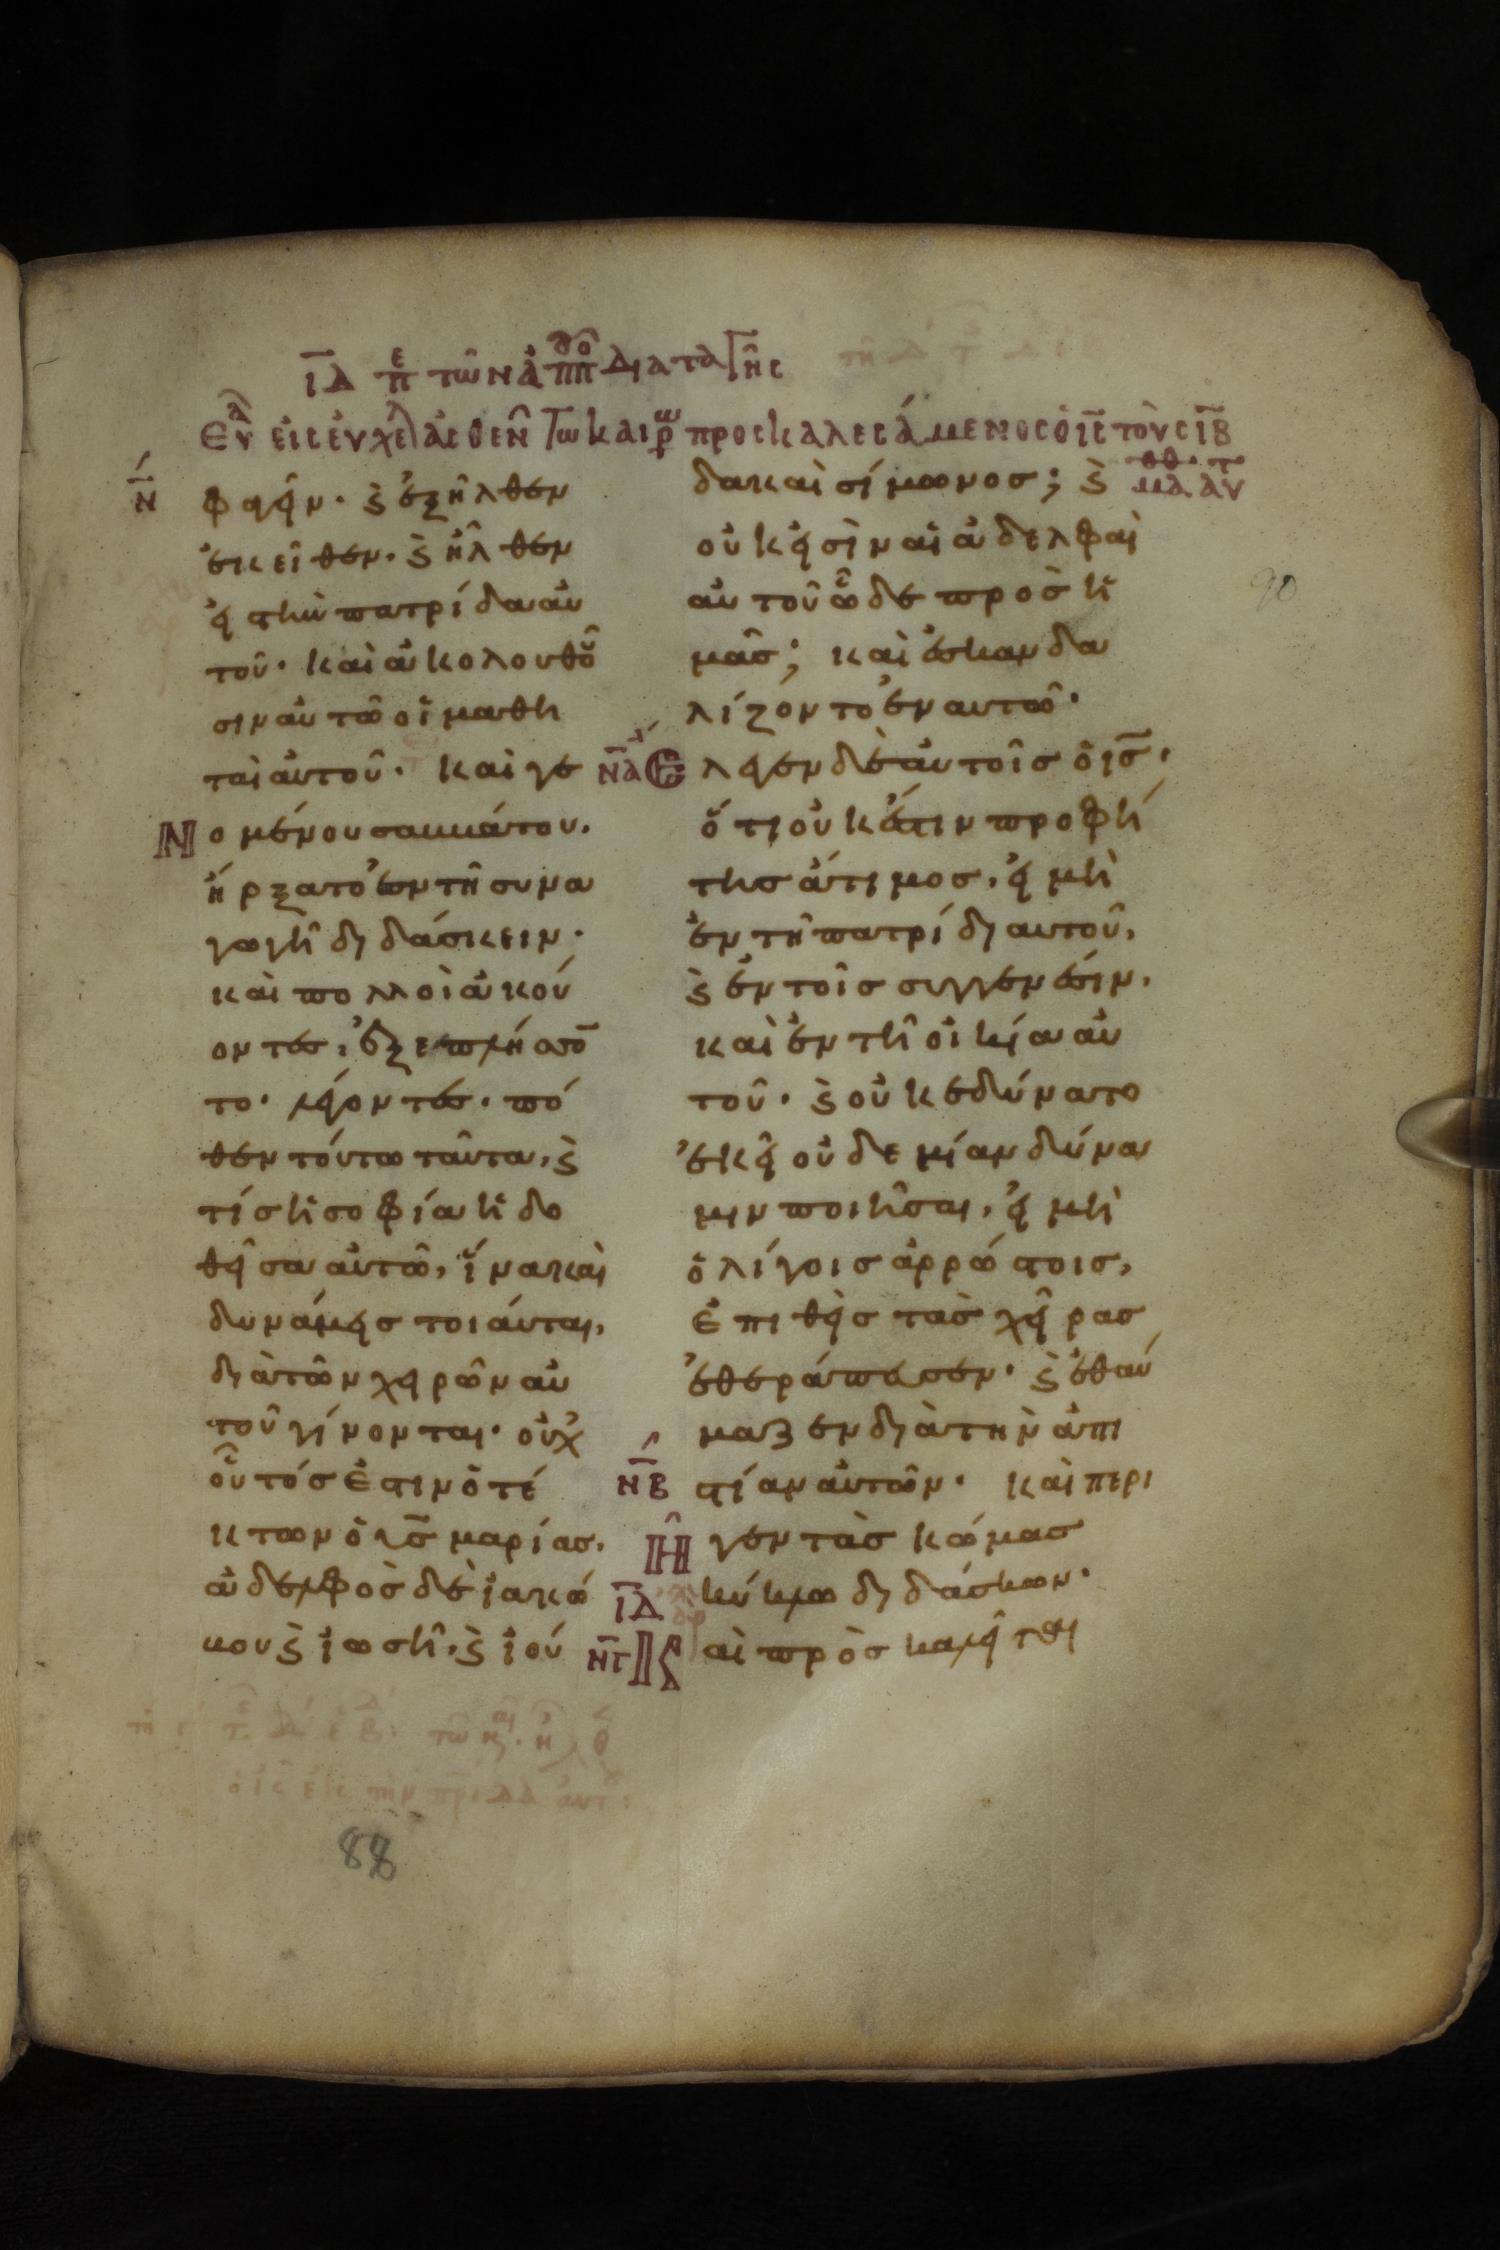 ῑδ̄ π̅ε τῶν ἀπο διαταγῆς
Εὐα εἰς εὐχελ ἀσθεν Τω καιρω προσκαλεσάμενος ὁ ις̅ τοὺς ιβ̅
μαθ τ αὐ
ν̅
φαγεῖν· ϗ ἐξῆλθεν
ἐκεῖθεν· ϗ ἦλθεν
εἰς τὴν πατρίδα αὐ
τοῦ· καὶ ἀκολουθοῦ
σιν αὐτῶ οἱ μαθη
ταὶ αὐτοῦ· καὶ γε
Νομένου σαββάτου.
ἤρξατο ἐν τῆ συνα
γωγῆ διδάσκειν·
καὶ πολλοὶ ἀκού
οντες, ἐξεπλήσσο̅
το· λέγοντες· πό
θεν τούτω ταῦτα, ϗ
τίς ἡ σοφία ἡ δο
θεῖσα αὐτῶ, ἵνα καὶ
δυνάμεις τοιάυται,
διὰ τῶν χειρῶν αὐ
τοῦ γίνονται· οὐχ
οὗτός ἐστιν ὁ τέ
κτων ὁ υς̅ μαρίας.
ἀδελφὸς δὲ ἰακώ
βου ϗ ἰωσῆ, ϗ ἰού
δα καὶ σίμωνος; ϗ
οὐκ εἰσὶν αἱ ἀδελφαὶ
αὐτοῦ ὧδε πρὸς ἡ
μᾶς; καὶ ἐσκανδα
λίζοντο ἐν αυτῶ·
ν̅α̅ Ἔλεγεν δὲ αὐτοῖς ὁ ις̅,
ὅτι οὐκ ἔστιν προφή
της ἄτιμος, εἰ μὴ
ἐν τῆ πατρίδι αυτοῦ,
ϗ ἐν τοῖς συγγενέσιν,
καὶ ἐν τῆ οἰκία αὐ
τοῦ· ϗ οὐκ εδύνατο
ἐκεῖ οὐδεμίαν δύνα
μιν ποιῆσαι, εἰ μὴ
ὀλίγοις ἀρρώστοις,
ἐπιθεὶς τὰς χεῖρας
ἐθεράπευσεν· ϗ ἐθαύ
μαζεν διὰ τὴν ἀπι
ν̅β̅ στίαν αὐτῶν· καὶ περι
Η͂γεν τὰς κώμας
ῑδ̅ κύκλω διδάσκων·
ν̅γ̅ Καὶ προσκαλεῖται
90
88